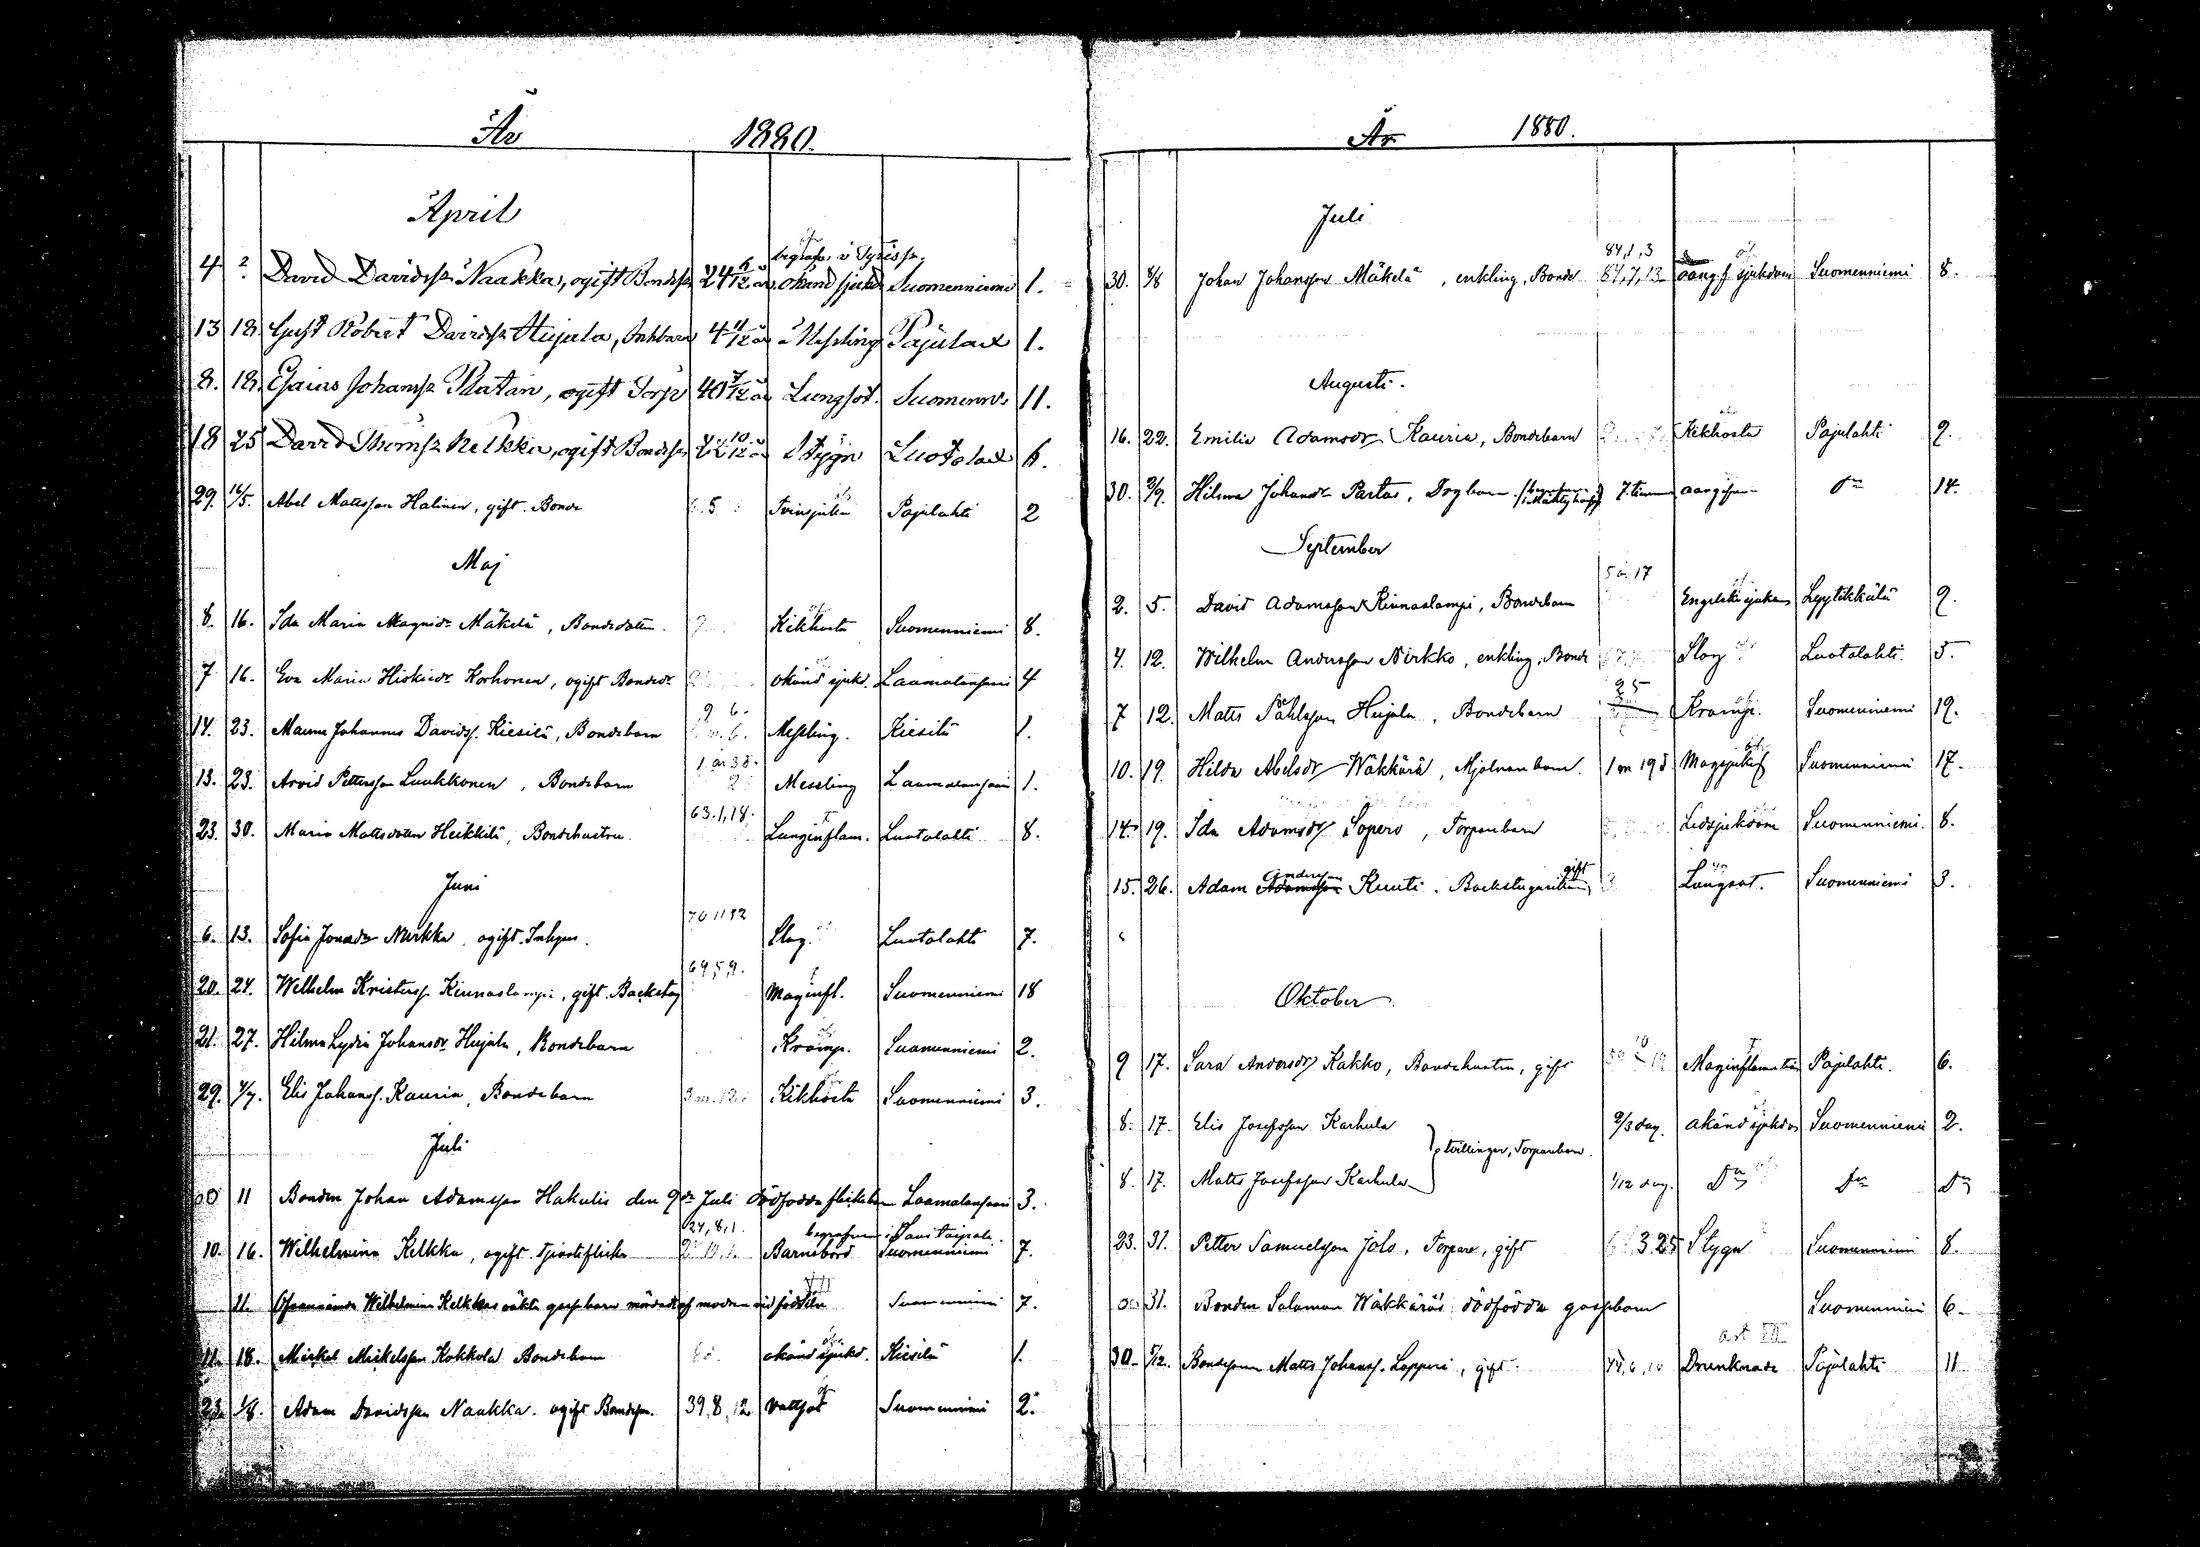 År 1880.
April
begrafn. i
4 ? David Davidss. Naakka, ogift Bondess. 24 6/12 år okänd sjukd Suomenniemi 1.
13 18. Gust Robert Davidss. Hujala, Inhbarn 4 11/12 år Messling Pajulax 1.
8. 18. Esaias Johanss. Platan, ogift Torp 40 7/12 år Lungsot. Suomenn: 11.
18 25 David Thomss. Kelkka, ogift Bondess 10/12 år Stygn Luotolax 6.
29. 16/5. Abel Matsson Halinen, gift. Bonde 5 Pajulahti 2
Maj
8. 16. Ida Maria Magnidr Mäkelä, Bondedotter. Kikhosta Suomenniemi 8.
7 16. Eva Maria Hiskiedr Korhonen, ogift Bondedr okänd sjukd. Laamalansaari 4
9 6.
14. 23. Maunu Johannes Davidss. Kiesilä, Bondebarn Messling. Kiesilä 1.
1 år 38.
13. 23. Arvid Pettersson Luukkonen, Bondebarn 2 Messling Laamalansaari 1.
63.1,18.
23. 30. Maria Mattsdotter Heikkilä, Bondehustru. Lunginflam. Luotolahti 8.
Juni
70 11 22
6. 13. Sofia Jonasdr Nirkko, ogift. Inhyses. Slag. Luotolahti 7.
69,5,9.
20. 24. Wilhelm Kristerss. Kinnaslampi, gift. Backstug Maginfl. Suomenniemi 18
21. 27. Hilma Lydia Johansdr Hujala, Bondebarn Kramp. Suomenniemi 2.
29. 4/7. Elis Johanss. Kauria, Bondebarn 3 m. Kikhosta Suomenniemi 3.
Juli
00 11 Bonden Johan Adamsson Hakulis den 9de Juli dödfödda flickebarn Laamalansaari 3.
24,8,1. begrafven i Savitaipale.
10. 16. Wilhelmina Kelkka, ogift. Tjenstеflicka Barnsbörd Suomenniemi 7.
11. Ofvannämnda Wilhelmina Kelkkas oäkta gossebarn mördadt af modren vid födseln Suomenniemi 7.
11. 18. Mickel Mickelsson Kokkola Bondebarn okänd sjukd. Kiesilä 1.
23. 1/8. Adam Davidsson Naakka. ogift Bondeson. 39,8,12 Vattsot Suomenniemi 2.
År 1880.
Juli
84,1,3
30. 8/8 Johan Johansson Mäkelä, enkling, Bonde 81,7,13 oang.f sjukdom Suomenniemi 8.
Augusti.
16. 22. Emilia Adamsdr Kauria, Bondebarn Kikhosta Pajulahti 9.
30. 2/9. Hilma Johansdr Partas, Drgbarn 7. timmar oangifven do 14.
September
5 år 17
2. 5. David Adamsson Kinnaslampi, Bondebarn Engelska sjukan Lyytikkälä 9.
4. 12. Wilhelm Andersson Nirkko, enkling, Bonde Slag Luotolahti. 5.
25
7 12. Matts Påhlsson Hujala, Bondebarn Kramp. Suomenniemi 19.
10. 19. Hilda Abelsdr Wäkkärä, Mjölnarebarn. 1 m 19 d Magsjukd Suomenniemi 17.
14. 19. Ida Adamsdr Sopero, Torparebarn Ledsjukdom Suomenniemi. 8.
Andersson gift
15. 26. Adam Adamsson Kuuti. Backstugusittare, Lungsot. Suomenniemi 3.
Oktober
9 17. Sara Andersdr Kakko, Bondehustru, gift Maginflamation Pajulahti. 6.
8. 17. Elis Josefsson Karhula 2/3 dag. okänd sjukdom Suomenniemi 2.
tvillingar, Torparebarn.
8. 17. Matts Josefsson Karhula 1/12 dag. do do do
23. 31. Petter Samuelsson Jolo, Torpare, gift 3.25 Stygn Suomenniemi 8.
00 31. Bonden Salomon Wäkkäräs dödfödda gossebarn Suomenniemi 6.
art III
30. 5/12. Bondesonen Matts Johanss. Lopperi, gift Drunknade Pajulahti 11